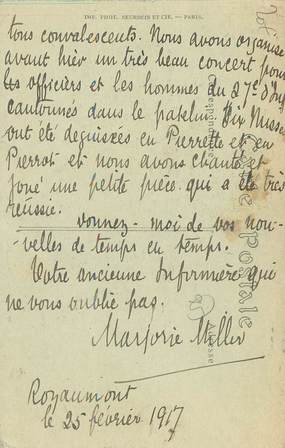 IMP. PHOT. NEURDEIN ET CIE. — PARIS.
tous convalescents. Nous avons organisé
avant hier un très beau concert pour
les officiers et les hommes du 27e d'Inf
cantonnés dans le patelin. Dix Misses
ont été deguisées en Pierrette et en
Pierrot et nous avons chanté et
joué une petite pièce qui a été très
réussie.
Donnez-moi de vos nou-
velles de temps en temps.
Votre ancienne Infirmière qui
ne vous oublie pas.
Marjorie Miller
Royaumont
le 25 février 1917
Carte postale
Correspondance
Adresse